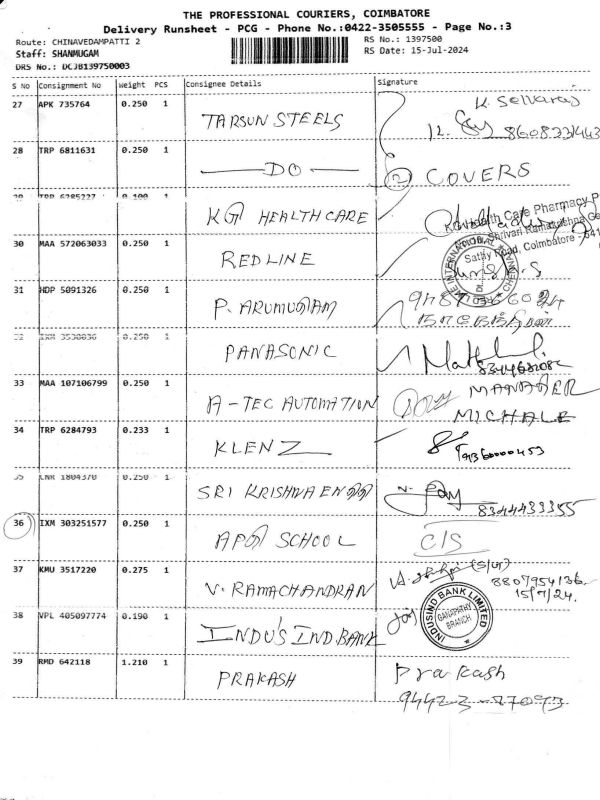 THE PROFESSIONAL COURIERS, COIMBATORE
Delivery Runsheet - PCG - Phone No.:0422-3505555 - Page No.:3
Route: CHINAVEDAMPATTI 2
RS No.: 1397500
Staff: SHANMUGAM
RS Date: 15-Jul-2024
DRS No.: DCJB139750003
S No Consignment No Weight PCS Consignee Details Signature
27 APK 735764 0.250 1 TARSUN STEELS K. Selvaraj
28 TRP 6811631 0.250 1 DO 2 COVERS
29 TRP 6285227 0.100 1 KG HEALTH CARE
Health Care Pharmacy P
Sathy Road, Coimbatore - 641
30 MAA 572063033 0.250 1 REDLINE
31 HDP 5091326 0.250 1 P. ARUMUGAM
32 IXM 3538036 0.250 1 PANASONIC
33 MAA 107106799 0.250 1 A-TEC AUTOMATION MANAGER
MICHALE
34 TRP 6284793 0.233 1 KLENZ 9360000453
35 LNR 1804370 0.250 1 SRI KRISHNA ENGG 8344433355
36 IXM 303251577 0.250 1 APG SCHOOL C/S
37 KMU 3517220 0.275 1 V. RAMACHANDRAN 8807954136
15/7/24.
38 VPL 405097774 0.190 1 INDU'S IND. BANK
INDUSIND BANK LIMITED
GANAPATHY
BRANCH
39 RMD 642118 1.210 1 PRAKASH Prakash